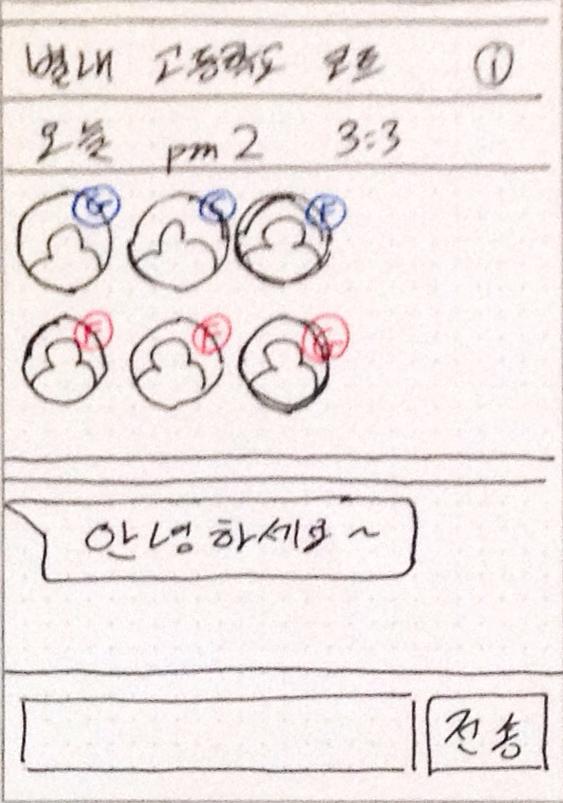 별내 고등학교 코트 i
오늘 pm 2 3:3
G G F
F F G
안녕하세요~
전송